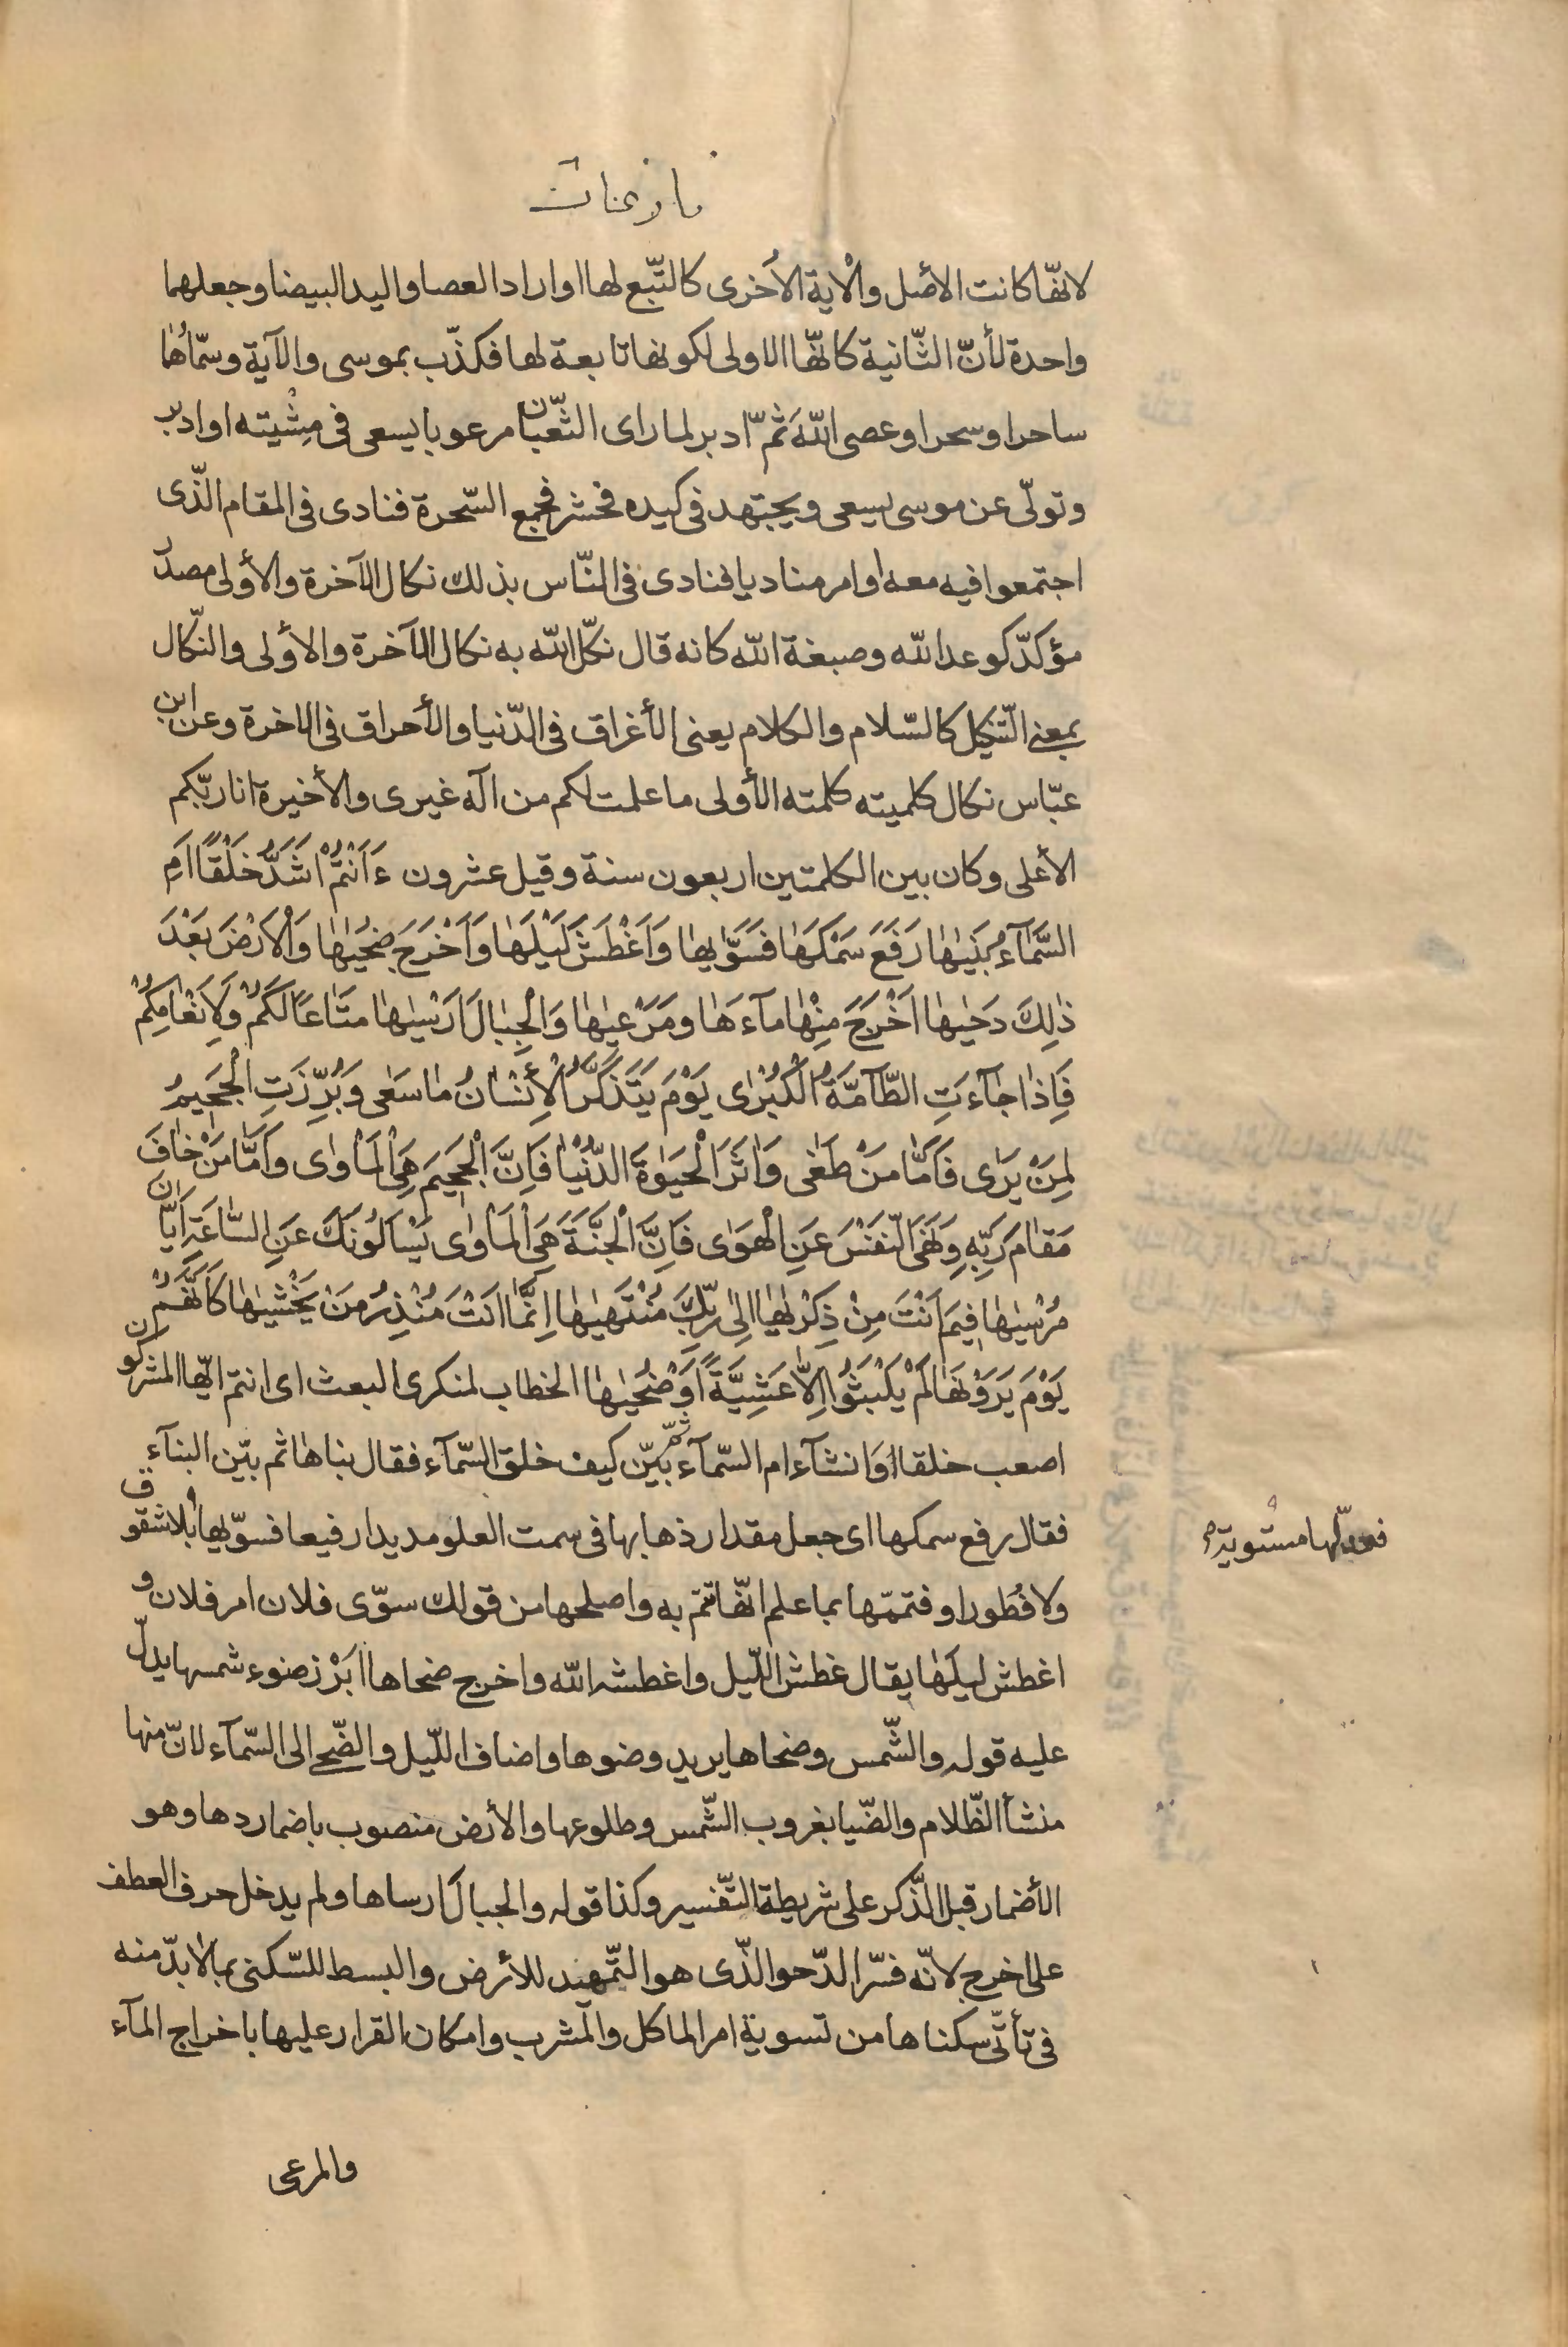 نازعات
لانّها كانت الأصل والاية الأخرى كالتّبع لها او اراد العصا واليد البيضا وجعلهما
واحدة لأنّ الثّانية كانّها الاولى لكونها تابعة لها فكذّب بموسى والآية وسمّاهُا
ساحرا وسحرا وعصى اللّه ثمّ ادبر لما راى الثّعبان مرعوبا يسعى فى مِشْيته او ادبر
وتولّى عن موسى يسعى ويجتهد فى كيده فحشر فجمع السّحرة فنادى فى المقام الّذى
اجتمعوا فيه معه او امر مناديا فنادى فى النّاس بذلك نكال الآخرة والأولى مصدر
مؤكدّ كوعد اللّه وصبغة اللّه كانه قال نكّل اللّه به نكال الآخرة والأولى والنّكال
بمعنى التّنكيل كالسّلام والكلام يعنى الأغراق فى الدّنيا والأحراق فى الاخرة وعن ابن
عبّاس نكال كلميته كلمته الأولى ما علمت لكم من اله غيرى والأخيرة انا ربّكم
الأعلى وكان بين الكلمتين اربعون سنة وقيل عشرون ءَاَنْتُمْ اَشَدُّ خَلْقًا اَمِ
السَّمَآءُ بَنَيٰهٰا رَفَعَ سَمْكَهٰا فَسَوَّيٰهٰا وَاَغْطَشَ لَيْلَهٰا وَاَخْرَجَ ضُحَيٰهٰا وَالْاَرْضَ بَعْدَ
ذٰلِكَ دَحَيٰهٰا اَخْرَجَ مِنْهٰا مآءَهٰا ومَرْعيٰهٰا وَالْجِبٰالَ اَرْسَيٰهٰا مَتٰاعًا لَكُمْ وَلِاَنْعٰامِكُمْ
فَاِذٰا جٰآءَتِ الطّآمَّةُ الْكُبْرٰى يَوْمَ يَتَذَكَّرُ الْاِنْسٰانُ مٰا سَعٰى وَبُرِّزَتِ الْجَحيمُ
لِمَنْ يَرٰى فَاَمّٰا مَنْ طَغٰى وَاٰثَرَ الْحَيٰوةَ الدُّنْيٰا فَاِنَّ الْجَحيمَ هِىَ الْمَاْوٰى وَاَمّٰا مَنْ خٰافَ
مَقٰامَ رَبِّهِ وَنَهَى النَّفْسَ عَنِ الْهَوٰى فَاِنَّ الْجَنَّةَ هِىَ الْمَاْوٰى يَسْاَلُونَكَ عَنِ السّٰاعَةِ اَيّٰانَ
مُرْسَيٰهٰا فيمَ اَنْتَ مِنْ ذِكْرٰيهٰا اِلٰى رَبِّكَ مُنْتَهَيٰهٰا اِنَّمٰا اَنْتَ مُنْذِرُ مَنْ يَخْشَيٰهٰا كَاَنَّهُمْ
يَوْمَ يَرَوْنَهٰا لَمْ يَلْبَثُوا اِلّٰا عَشِيَّةً اَوْ ضُحَيٰهٰا الخطاب لمنكرى البعث اى انتم ايّها المشركون
اصعب خلقا وانشآء ام السّمآء ثمّ بيّن كيف خلق السّمآء فقال بناها ثم بيّن البنآء
فقال رفع سمكها اى جعل مقدار ذهابها فى سمت العلو مديدا رفيعا فسوّيها بلا شقوق
فعدّلها مستوية
ولا فُطور او فتمّمها بما علم انّها تتم به واصلحها من قولك سوّى فلان امر فلان و
اغطش ليلها يقال غطش اللّيل واغطشه اللّه واخرج ضحاها ابْرز ضوء شمسها يدلّ
عليه قوله والشّمس وضحاها يريد وضوها واضاف اللّيل والضّحى الى السّمآء لانّ منها
منشأ الظّلام والضّيا بغروب الشّمس وطلوعها والأرض منصوب باضمار دها وهو
الأضمار قبل الذّكر على شريطة التّفسير وكذا قوله والجبالَ ارساها ولم يدخل حرف العطف
على اخرج لانّه فسّر الدّحو الذّى هو التّمهيد للأرض والبسط للسّكنى بما لابدّ منه
فى تأتّى سكناها من تسوية امر الماكل والمشرب وامكان القرار عليها باخراج المآء
والمرعى